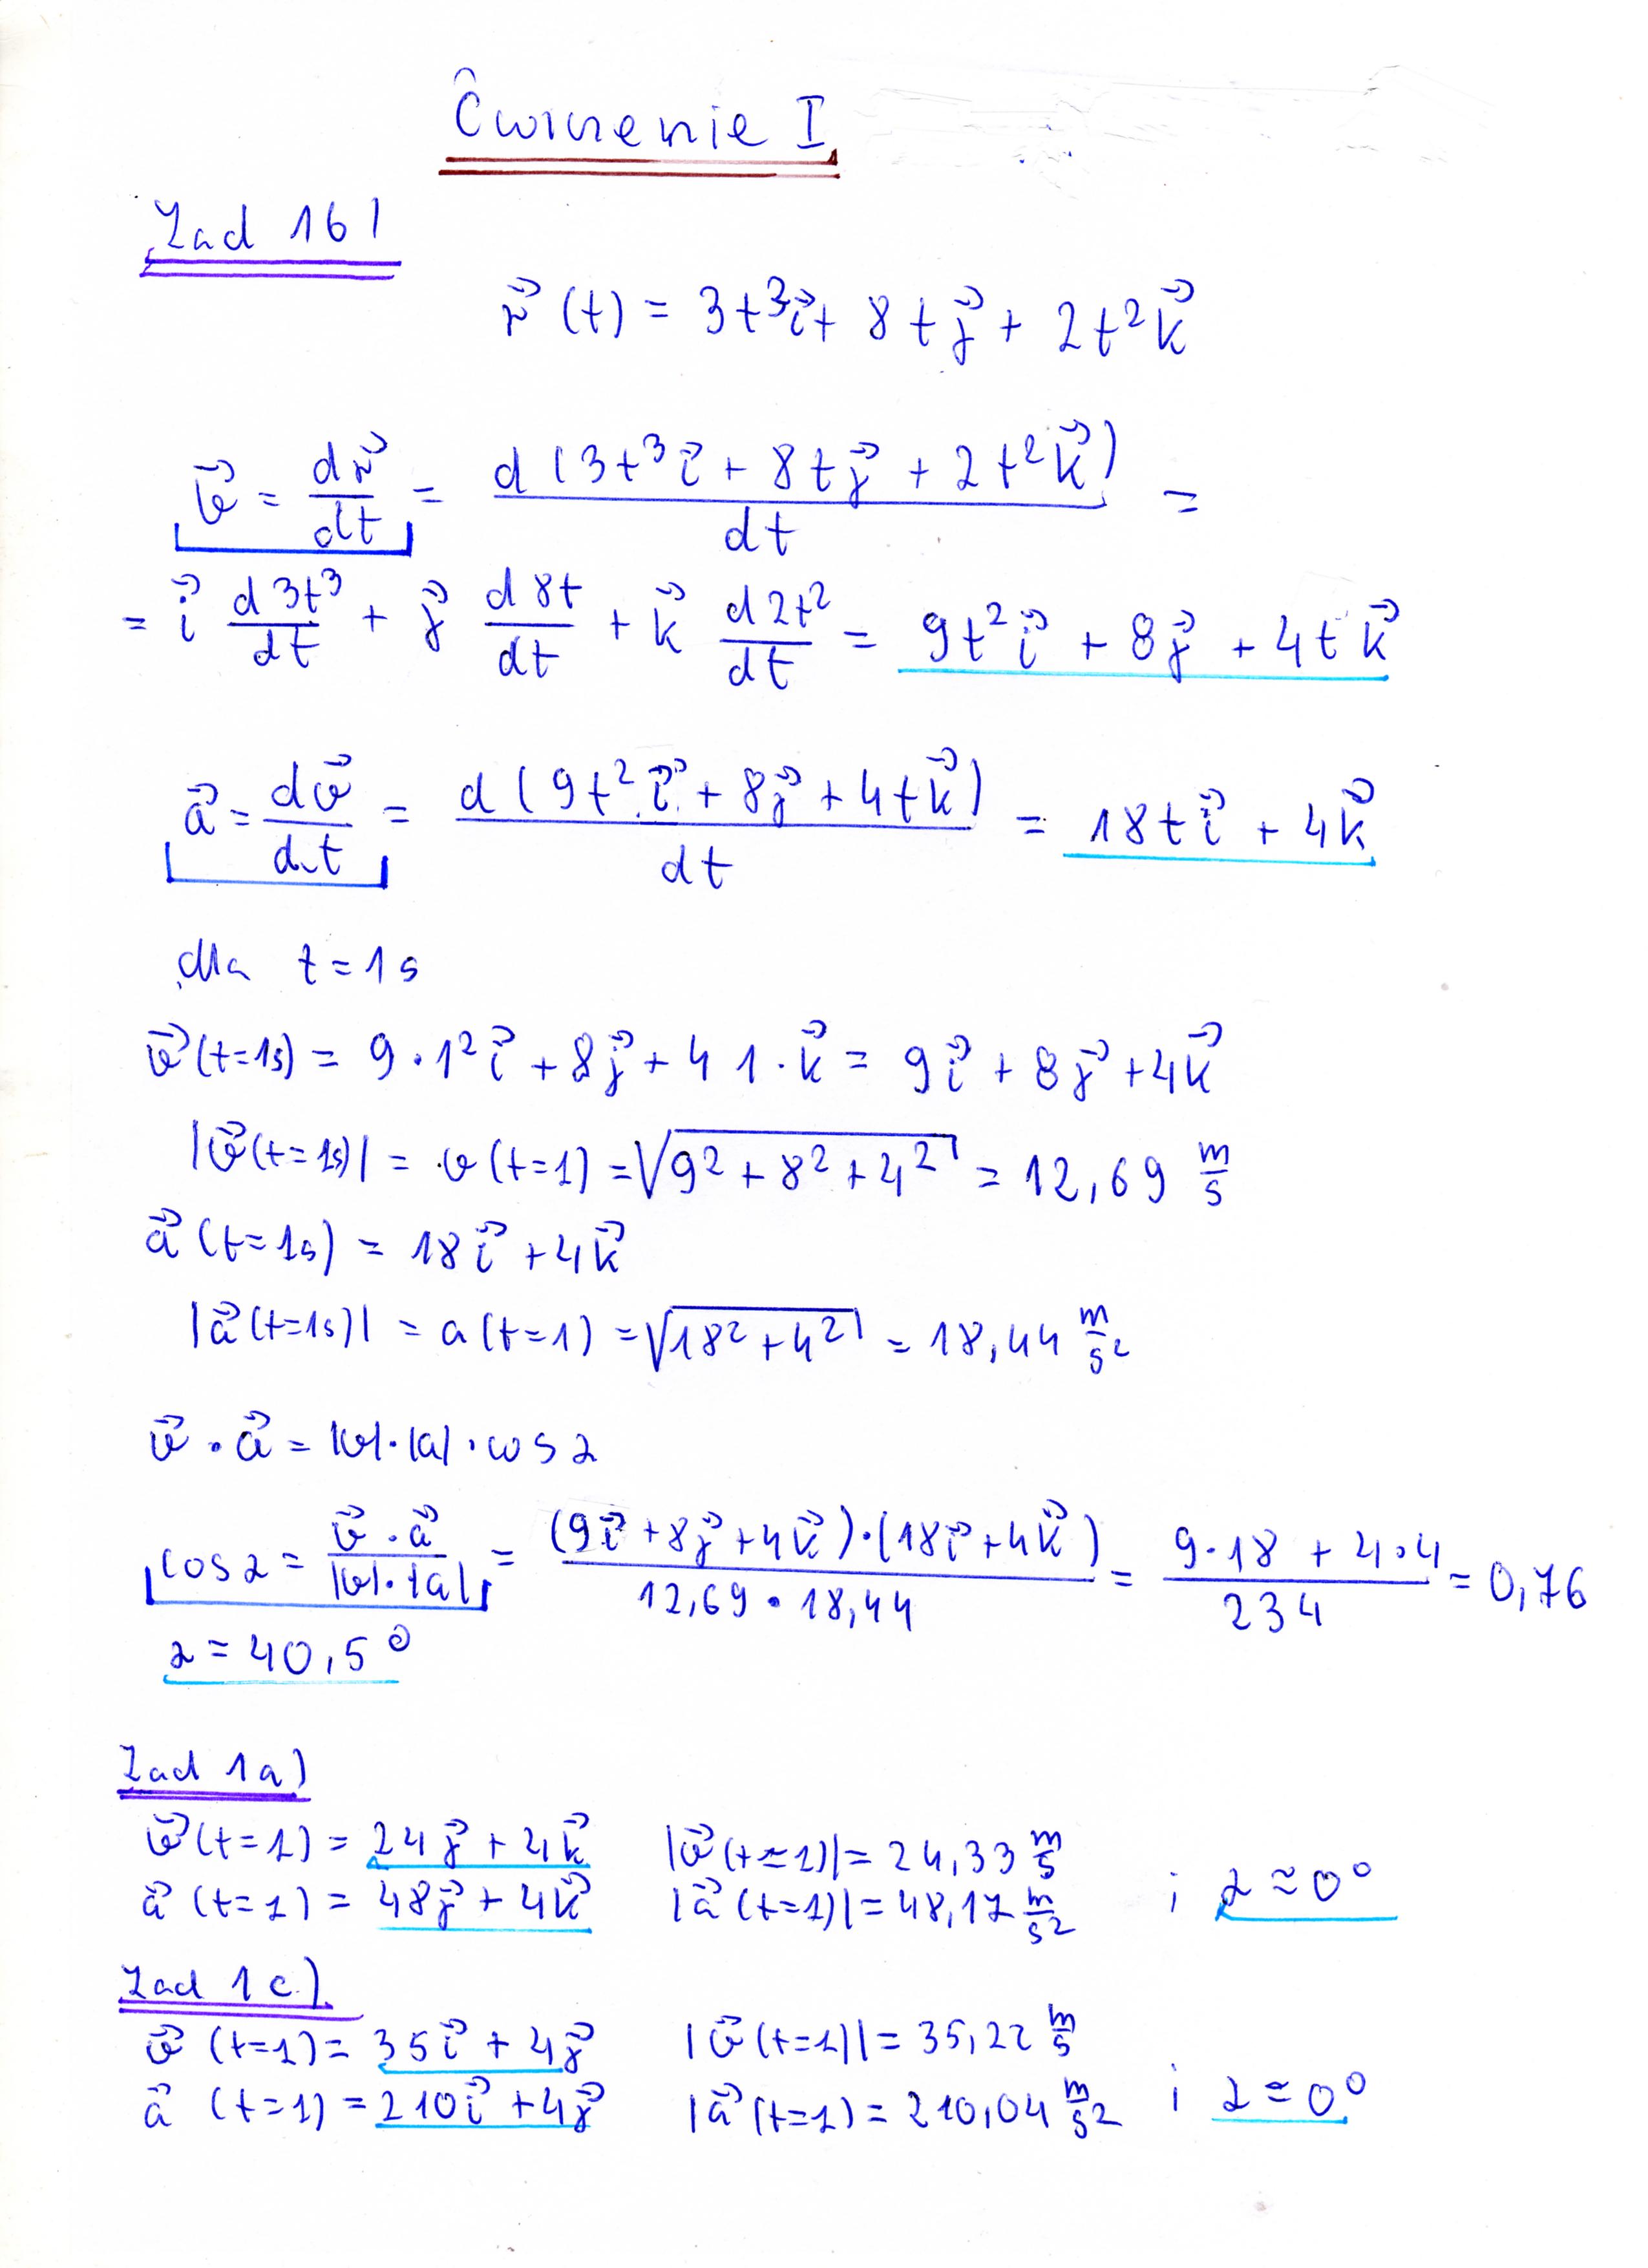 Ćwiczenie I
Zad 1b)
r⃗(t) = 3t³i⃗ + 8tj⃗ + 2t²k⃗
v⃗ = dr⃗/dt = d(3t³i⃗ + 8tj⃗ + 2t²k⃗)/dt =
= i⃗ d3t³/dt + j⃗ d8t/dt + k⃗ d2t²/dt = 9t²i⃗ + 8j⃗ + 4tk⃗
a⃗ = dv⃗/dt = d(9t²i⃗ + 8j⃗ + 4tk⃗)/dt = 18ti⃗ + 4k⃗
dla t=1s
v⃗(t=1s) = 9·1²i⃗ + 8j⃗ + 4 1·k⃗ = 9i⃗ + 8j⃗ + 4k⃗
|v⃗(t=1s)| = v(t=1) = √(9² + 8² + 4²) = 12,69 m/s
a⃗(t=1s) = 18i⃗ + 4k⃗
|a⃗(t=1s)| = a(t=1) = √(18² + 4²) = 18,44 m/s²
v⃗ · a⃗ = |v|·|a|·cos α
cos α = v⃗·a⃗/|v|·|a| = (9i⃗ + 8j⃗ + 4k⃗)·(18i⃗ + 4k⃗)/12,69·18,44 = 9·18 + 4·4/234 = 0,76
α = 40,5°
Zad 1a)
v⃗(t=1) = 24j⃗ + 4k⃗ |v⃗(t=1)| = 24,33 m/s
a⃗(t=1) = 48j⃗ + 4k⃗ |a⃗(t=1)| = 48,17 m/s² i α ≈ 0°
Zad 1c)
v⃗(t=1) = 35i⃗ + 4j⃗ |v⃗(t=1)| = 35,22 m/s
a⃗(t=1) = 210i⃗ + 4j⃗ |a⃗(t=1) = 210,04 m/s² i α ≈ 0°